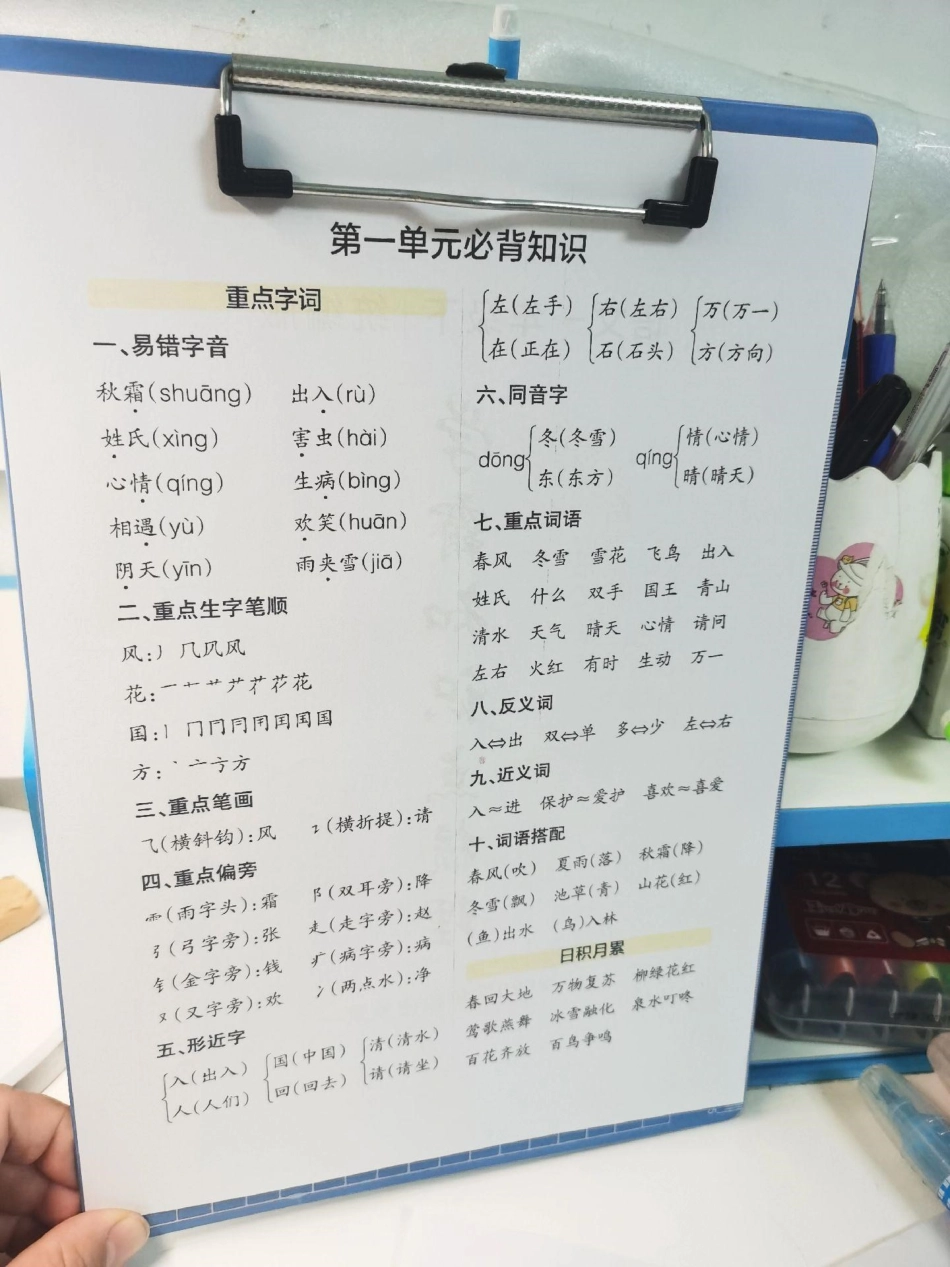 第一单元必背知识
重点字词
一、易错字音
秋霜(shuāng) 出入(rù)
姓氏(xìng) 害虫(hài)
心情(qíng) 生病(bìng)
相遇(yù) 欢笑(huān)
阴天(yīn) 雨夹雪(jiā)
二、重点生字笔顺
风:丿 几 凤 风
花:一 十 艹 艹 花 花 花
国:丨 冂 冂 冃 国 国 国 国
方:丶 亠 方 方
三、重点笔画
⺄(横斜钩):风 ㇊(横折提):请
四、重点偏旁
⻗(雨字头):霜 阝(双耳旁):降
弓(弓字旁):张 走(走字旁):赵
钅(金字旁):钱 疒(病字旁):病
又(又字旁):欢 冫(两点水):净
五、形近字
入(出入) 国(中国) 清(清水)
人(人们) 回(回去) 请(请坐)
左(左手) 右(左右) 万(万一)
在(正在) 石(石头) 方(方向)
六、同音字
dōng 冬(冬雪) qíng 情(心情)
东(东方) 晴(晴天)
七、重点词语
春风 冬雪 雪花 飞鸟 出入
姓氏 什么 双手 国王 青山
清水 天气 晴天 心情 请问
左右 火红 有时 生动 万一
八、反义词
入⇔出 双⇔单 多⇔少 左⇔右
九、近义词
入≈进 保护≈爱护 喜欢≈喜爱
十、词语搭配
春风(吹) 夏雨(落) 秋霜(降)
冬雪(飘) 池草(青) 山花(红)
(鱼)出水 (鸟)入林
日积月累
春回大地 万物复苏 柳绿花红
莺歌燕舞 冰雪融化 泉水叮咚
百花齐放 百鸟争鸣